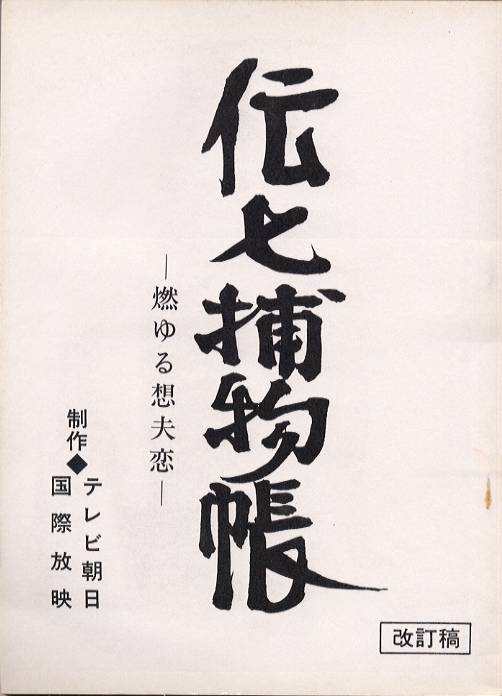 伝七捕物帳
―燃ゆる想夫恋―
制作◆
テレビ朝日
国際放映
改訂稿